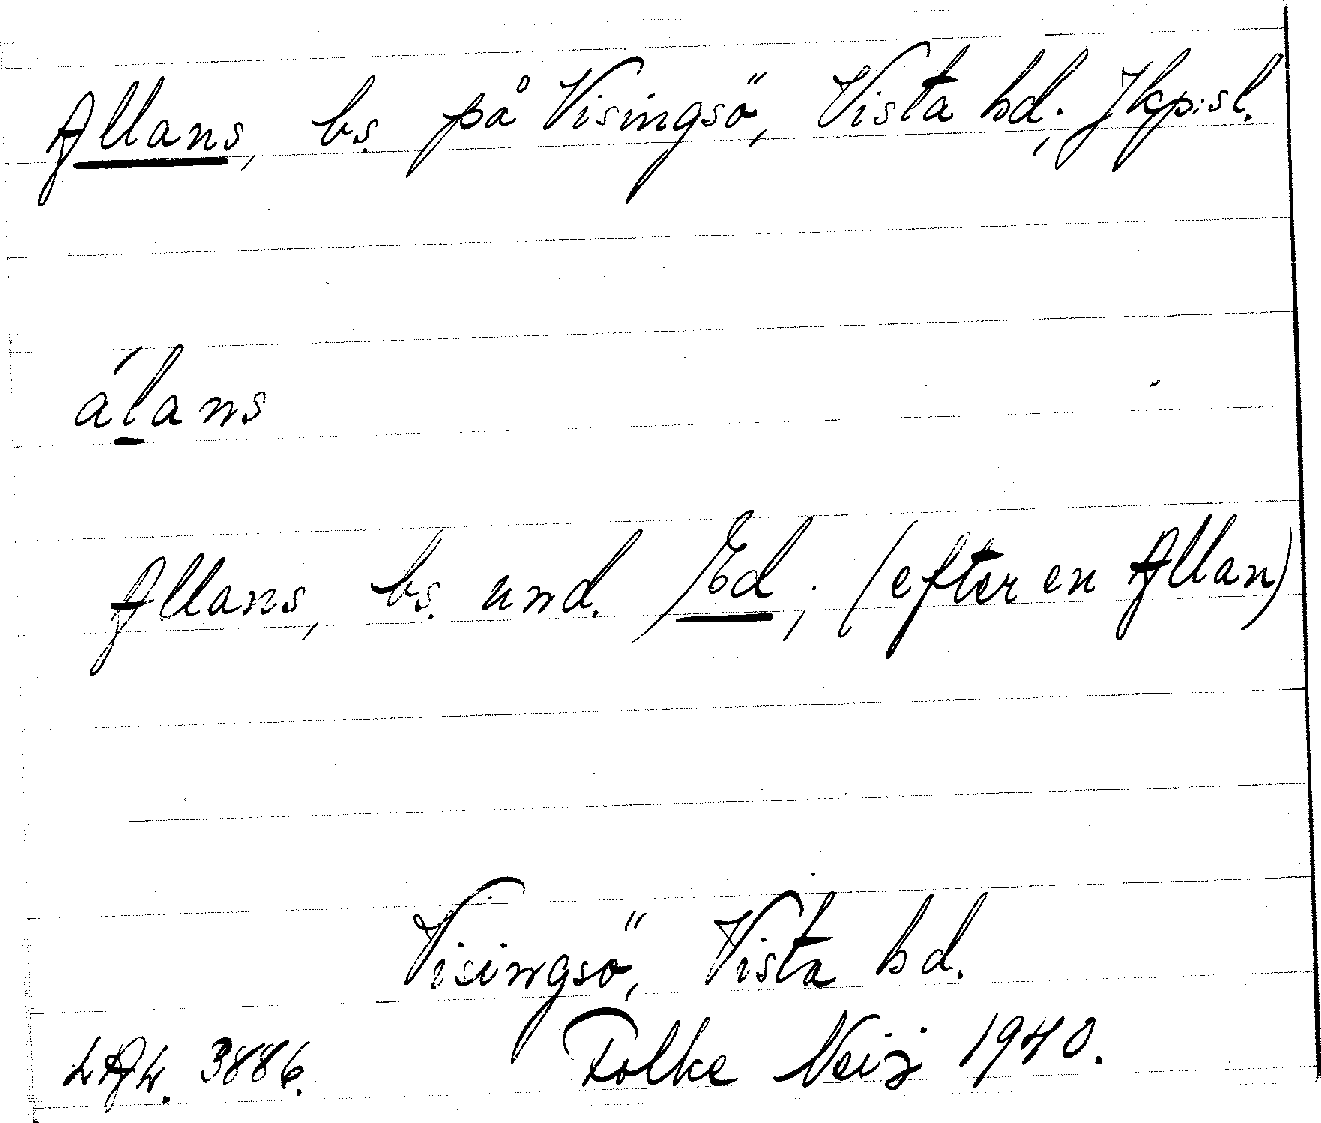 Allans, bs. på Visingsö, Vista hd., Jkp:sl.
álans
Allans, bs. und. Ed; (efter en Allan)
Visingsö, Vista hd.
LAL. 3886. Folke Neij 1940.